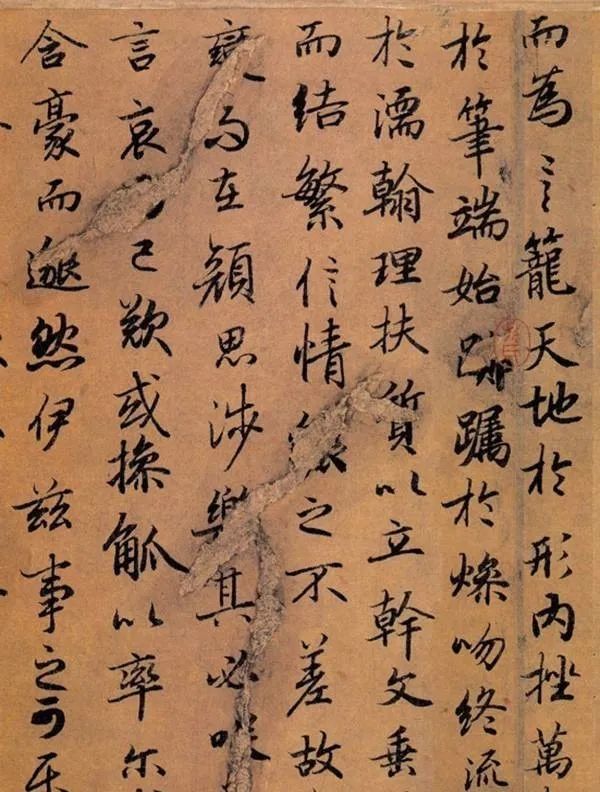 而為言籠天地於形內挫萬
於筆端始躅於燥吻終流
於濡翰理扶質以立幹文垂
而結繁信情之不差故
變而在顏思涉樂其必
言哀而已歎或操觚以率尓
含豪而邈然伊茲事之可